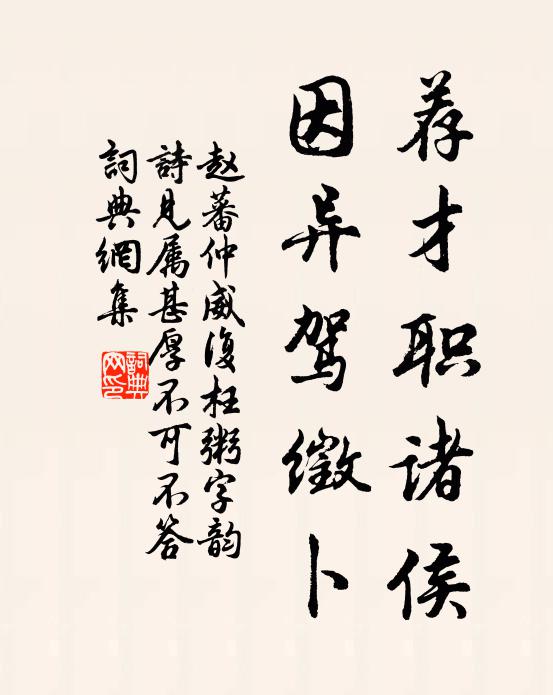 荐才职诸侯
因异驾徵卜
赵蕃仲威復枉粥字韵
詩見属甚厚不可不答
詞典網集
詞典網印